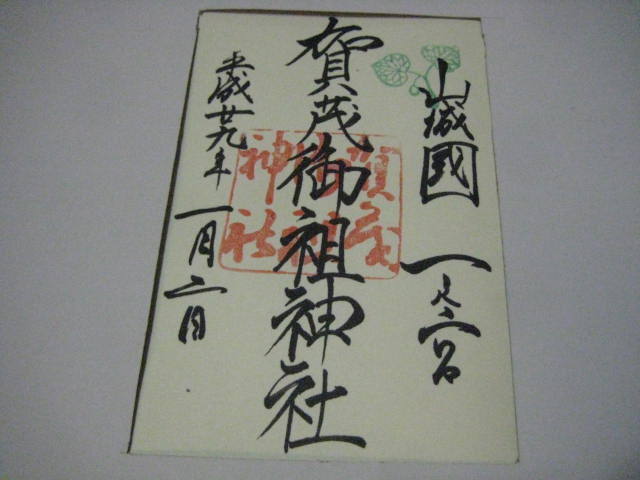 山城國 一之宮
賀茂御祖神社
平成廿九年一月二日
賀茂
神社